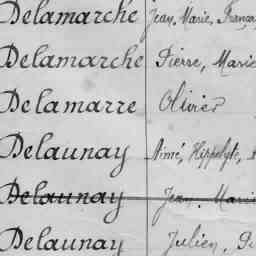 Delamarche Jean, Marie, França
Delamarche Pierre, Marie
Delamarre Olivier
Delaunay Aimé, Hippolyte,
Delaunay Jean Marie
Delaunay Julien,